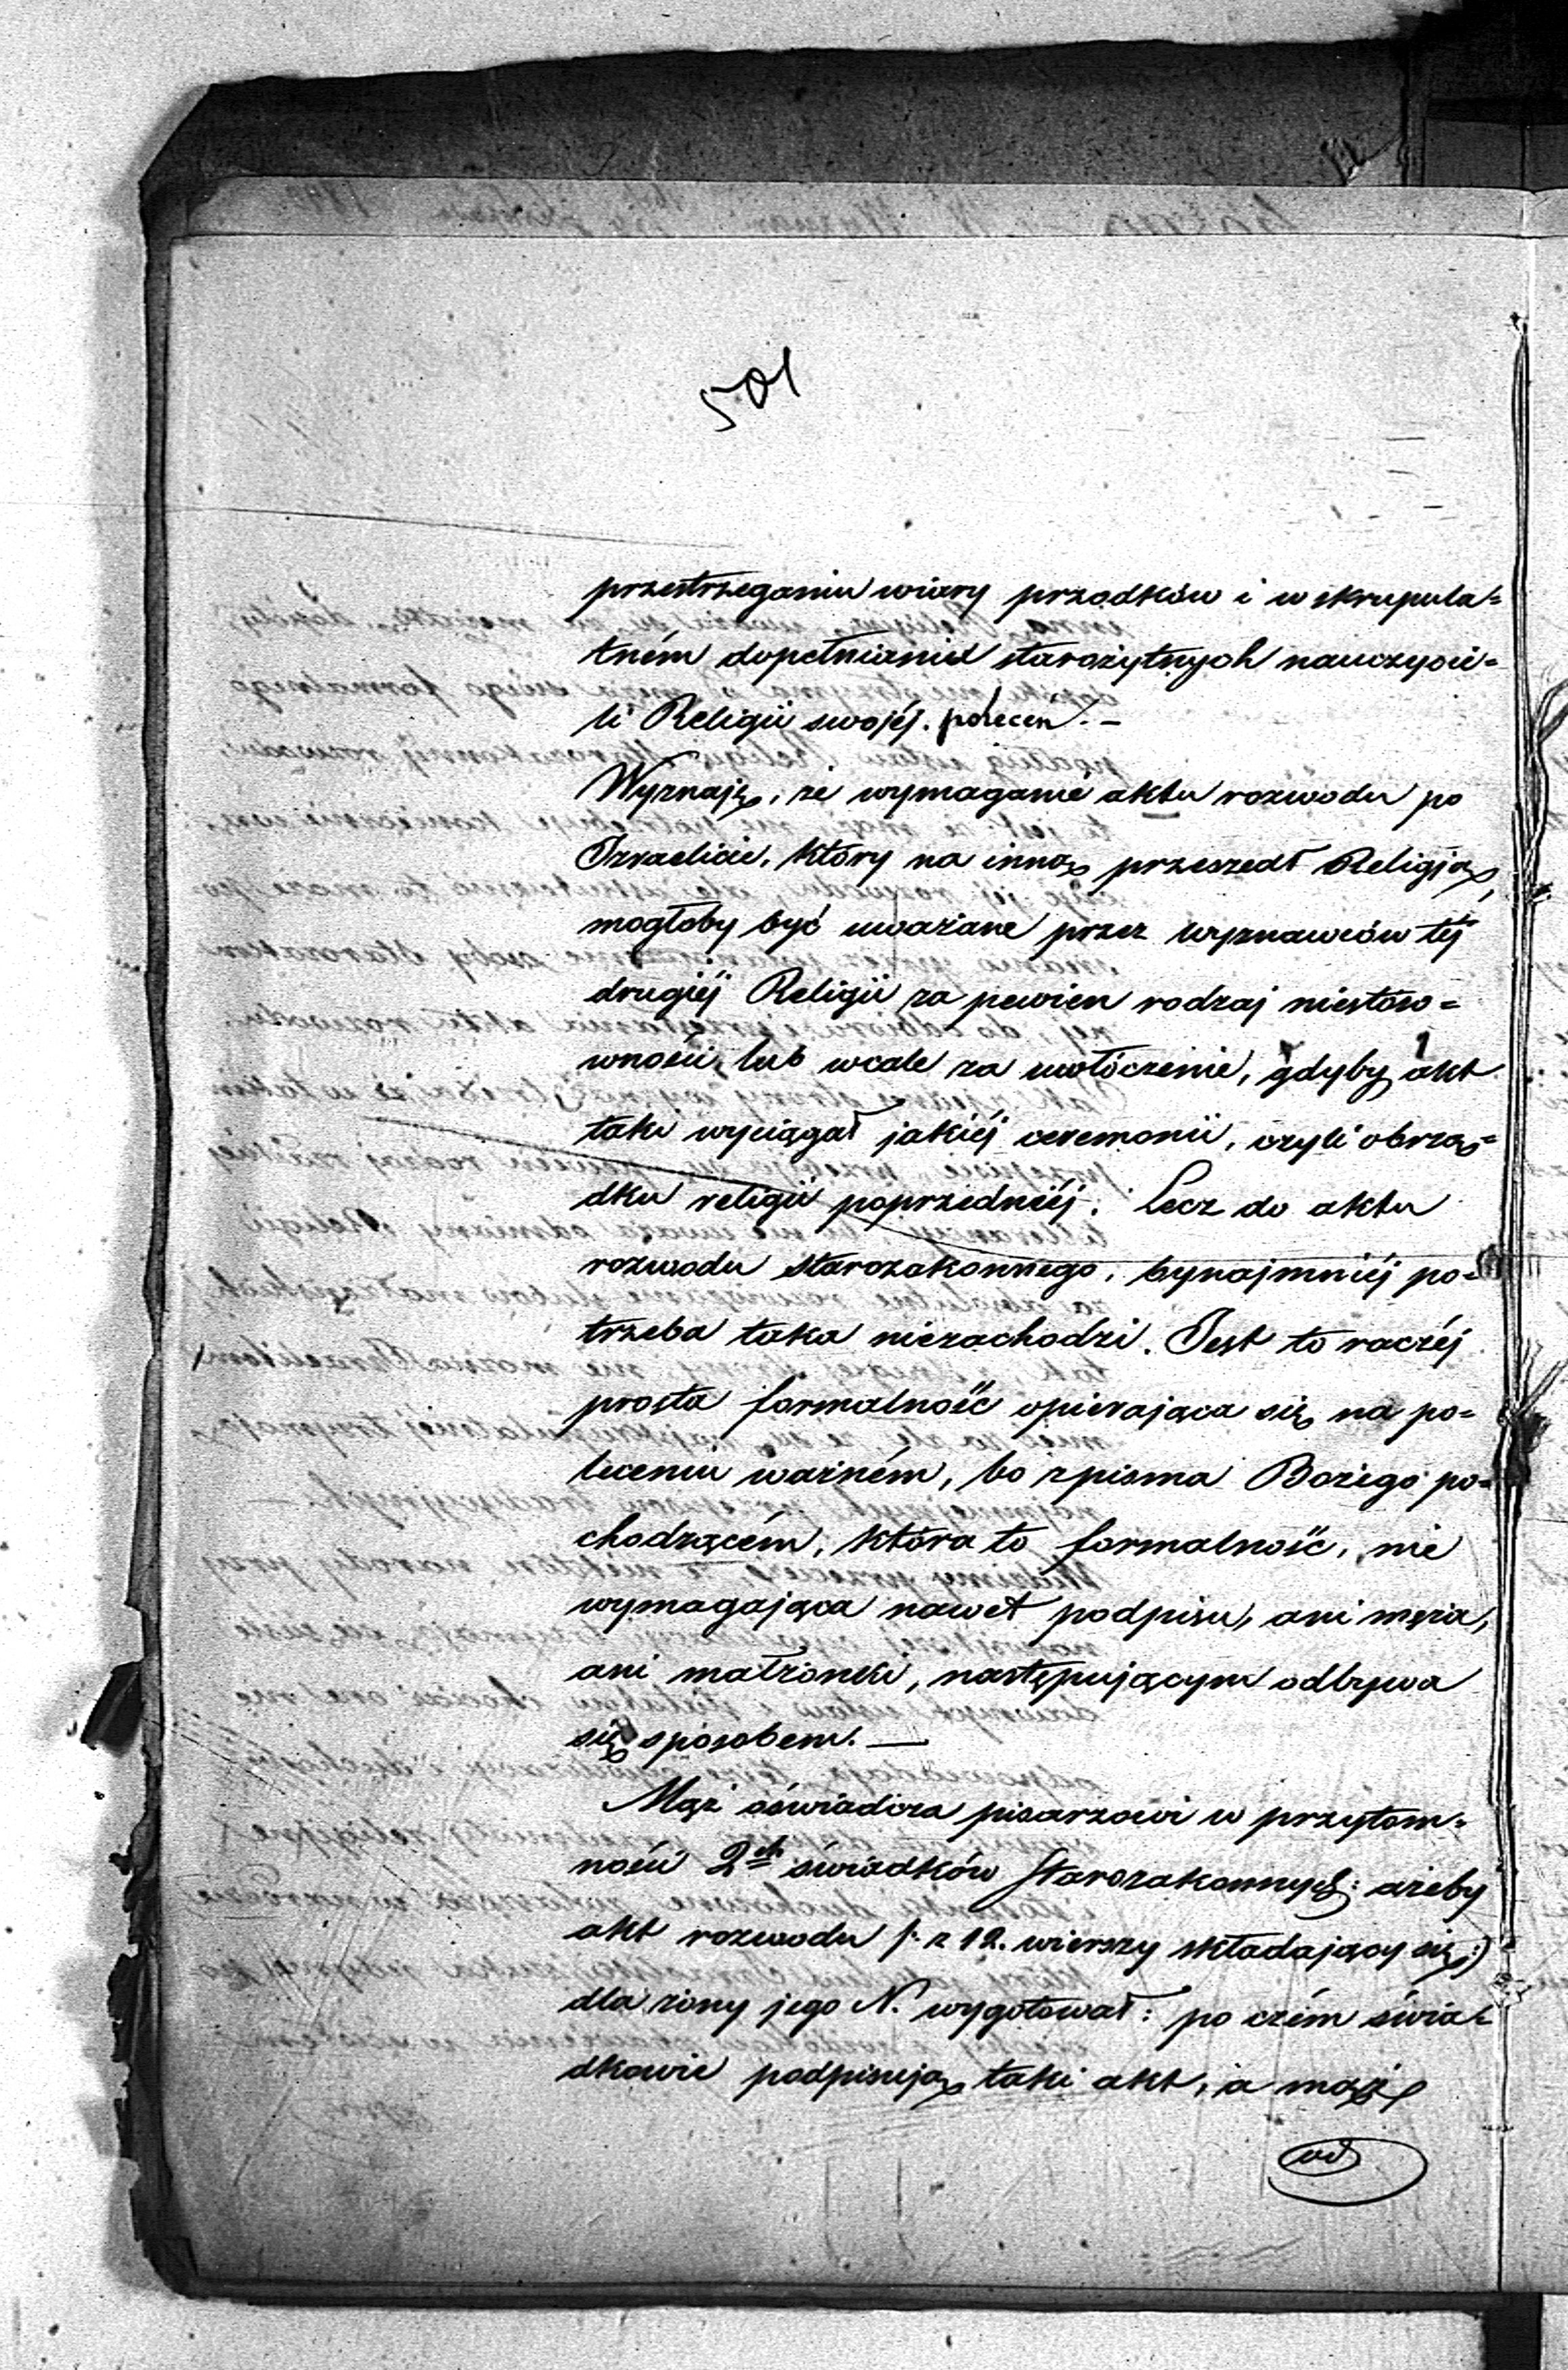 501
przestrzeganiu wiary przodków i w skrupula=
tném dopełnianiu starożytnych nauczycie=
li Religii swojéj poleceń. —
Wyznaję, że wymaganie aktu rozwodu po
Izraelicie, który na inną przeszedł Religją,
mogłoby być uważane przez wyznawców téj
drugiéj Religii za pewien rodzaj niestóso=
wności, lub wcale za uwłóczenie, gdyby akt
taki wyciągał jakiéj ceremonii, czyli obrzą=
dku religii poprzedniéj. Lecz do aktu
rozwodu starozakonnego, bynajmniéj po=
trzeba taka niezachodzi. Jest to raczéj
prosta formalność opierająca się na po=
leceniu ważném, bo z pisma Bożego po=
chodzącém, która to formalność, nie
wymagająca nawet podpisu, ani męża,
ani małżonki, następującym odbywa
się sposobem. —
Mąż oświadcza pisarzowi w przytom=
ności 2ch świadków Starozakonnych: ażeby
akt rozwodu /: z 12. wierszy składający się :/
dla żony jego N. wygotował: po czém świa=
dkowie podpisują taki akt, a mąż
od